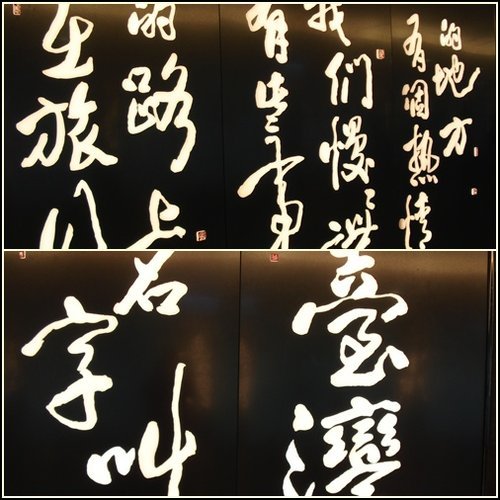 在旅行
的路上
有些事
我們慢慢
有個熱情
的地方
名字叫
臺灣